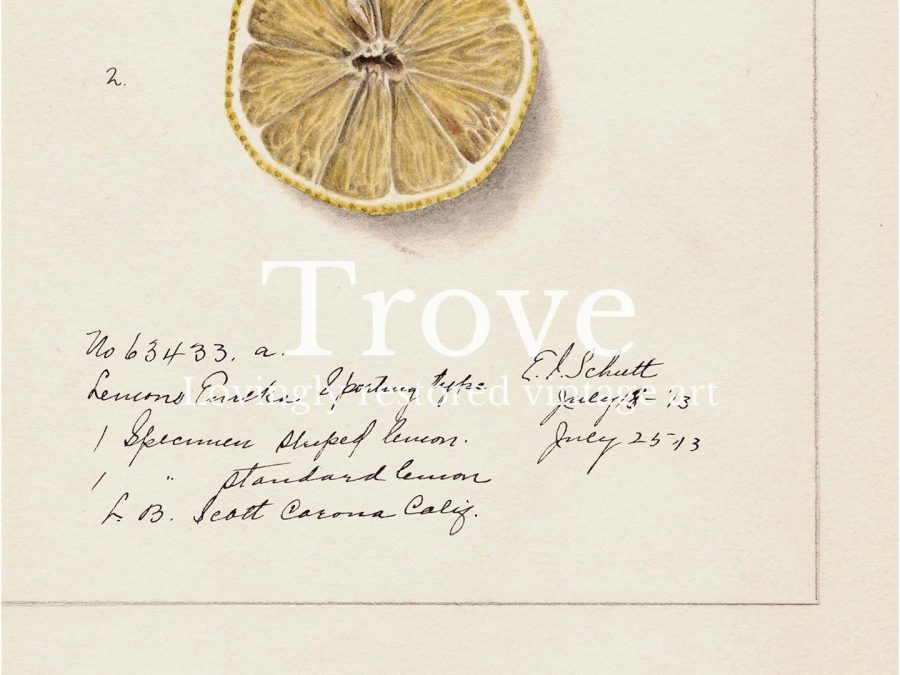 2.
Trove
Lovingly restored vintage art
No 63433. a.
Lemons Eureka Sporting type
1 Specimen striped lemon.
1 " standard lemon
L. B. Scott Corona Calif.
E. I. Schutt
July 18-13
July 25-13